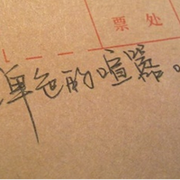 票处
单色的喧嚣。